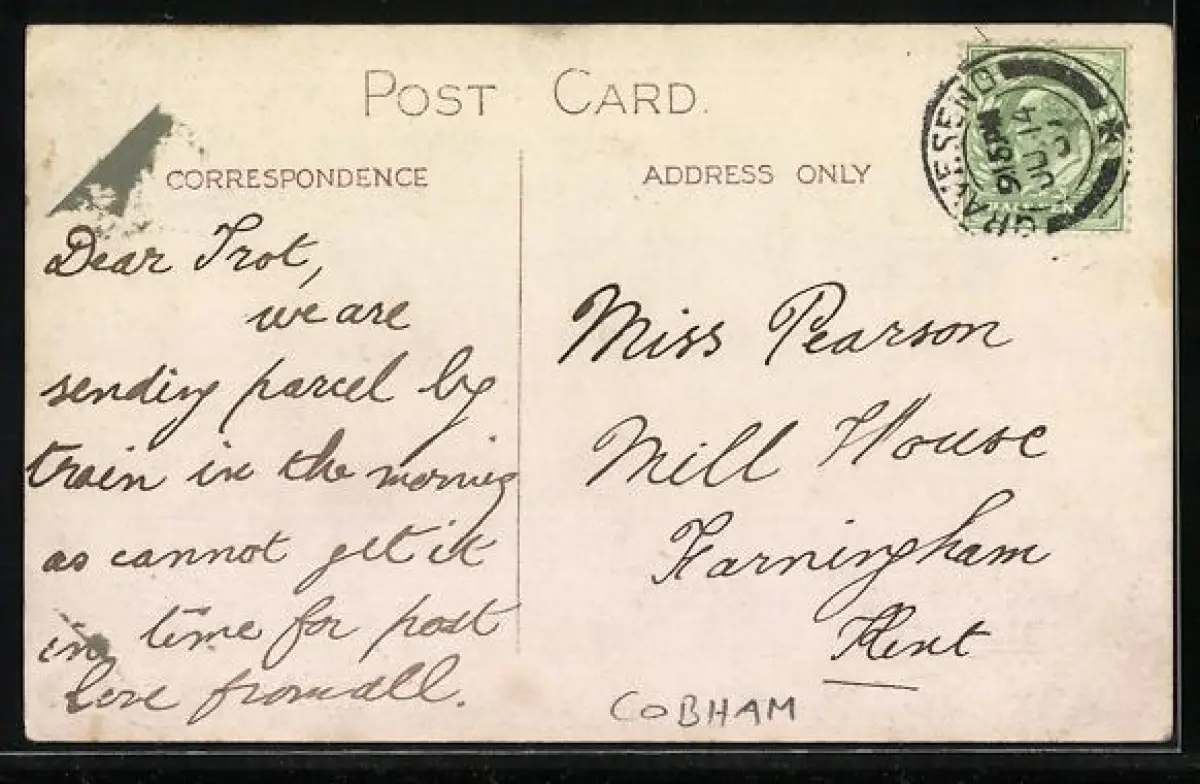 POST CARD.
CORRESPONDENCE
ADDRESS ONLY
GRAVESEND
9 15 PM
JU 14
Dear Trot,
we are
sending parcel by
train in the morning
as cannot get it
in time for post
love from all.
Miss Pearson
Mill House
Farningham
Kent
COBHAM